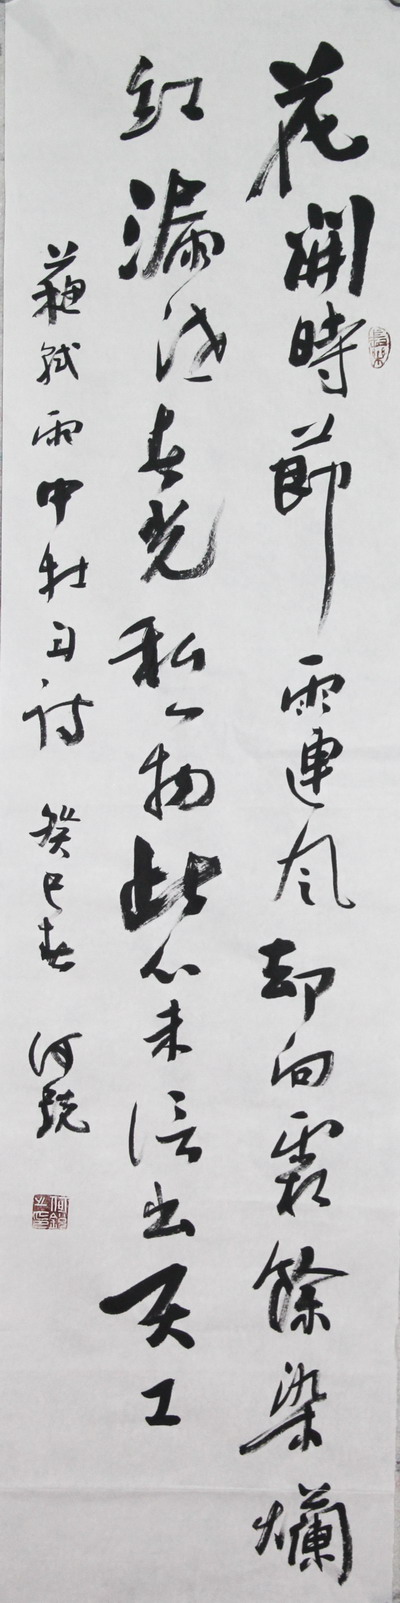 花開時節雨連風却向霜餘染爛
紅漏洩春光私一物此心未信出天工
蘇軾雨中牡丹詩 癸巳春 河銳